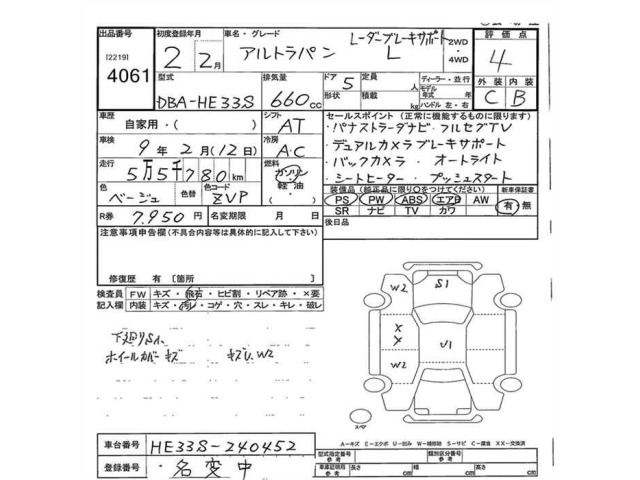 出品番号 初度登録年月 車名・グレード レーダーブレーキサポート 2WD ・4WD 評価点
[2219] 4061 2 2月 アルトラパン L 4
型式 排気量 ドア 5 定員 人 ディーラー・並行 外装 内装
形状 積載 kg モデル年式 年 ハンドル 左・右
DBA-HE33S 660cc C B
車歴 自家用・( ) シフト AT
セールスポイント (正常に機能するものに限ります)
・パナストラーダナビ・フルセグTV
車検 9年2月(12)日 冷房 A・C
・デュアルカメラブレーキサポート
・バックカメラ ・オートライト
走行 5万5千780km 燃料 ガソリン 軽油 ・( )
・シートヒーター ・プッシュスタート
色 ベージュ 色替 色コード ZVP
装備品 (純正品に限り○をつけてください) 新車保証書
PS PW ABS エアB AW 有・無
R券 7,950円 名変期限 月 日
SR ナビ TV カワ
注意事項申告欄(不具合内容等は具体的に記入して下さい)
後日品
修復歴 有 [箇所 ]
検査員記入欄 FW キズ・飛石・ヒビ割・リペア跡・×要
内装 キズ・汚レ・コゲ・穴・スレ・キレ・破レ
W2 S1
下廻りS1、
ホイールカバーキズ キズU、W2
X
X
U1
W2
スペア
A−キズ E−エクボ U−凹み W−補修跡 S−サビ C−腐食 XX−交換済
車台番号 HE33S-240452
登録番号 ・名変中
型式指定番号 参考 類別区分番号 参考
車庫証明用 参考 長さ cm 幅 cm 高さ cm